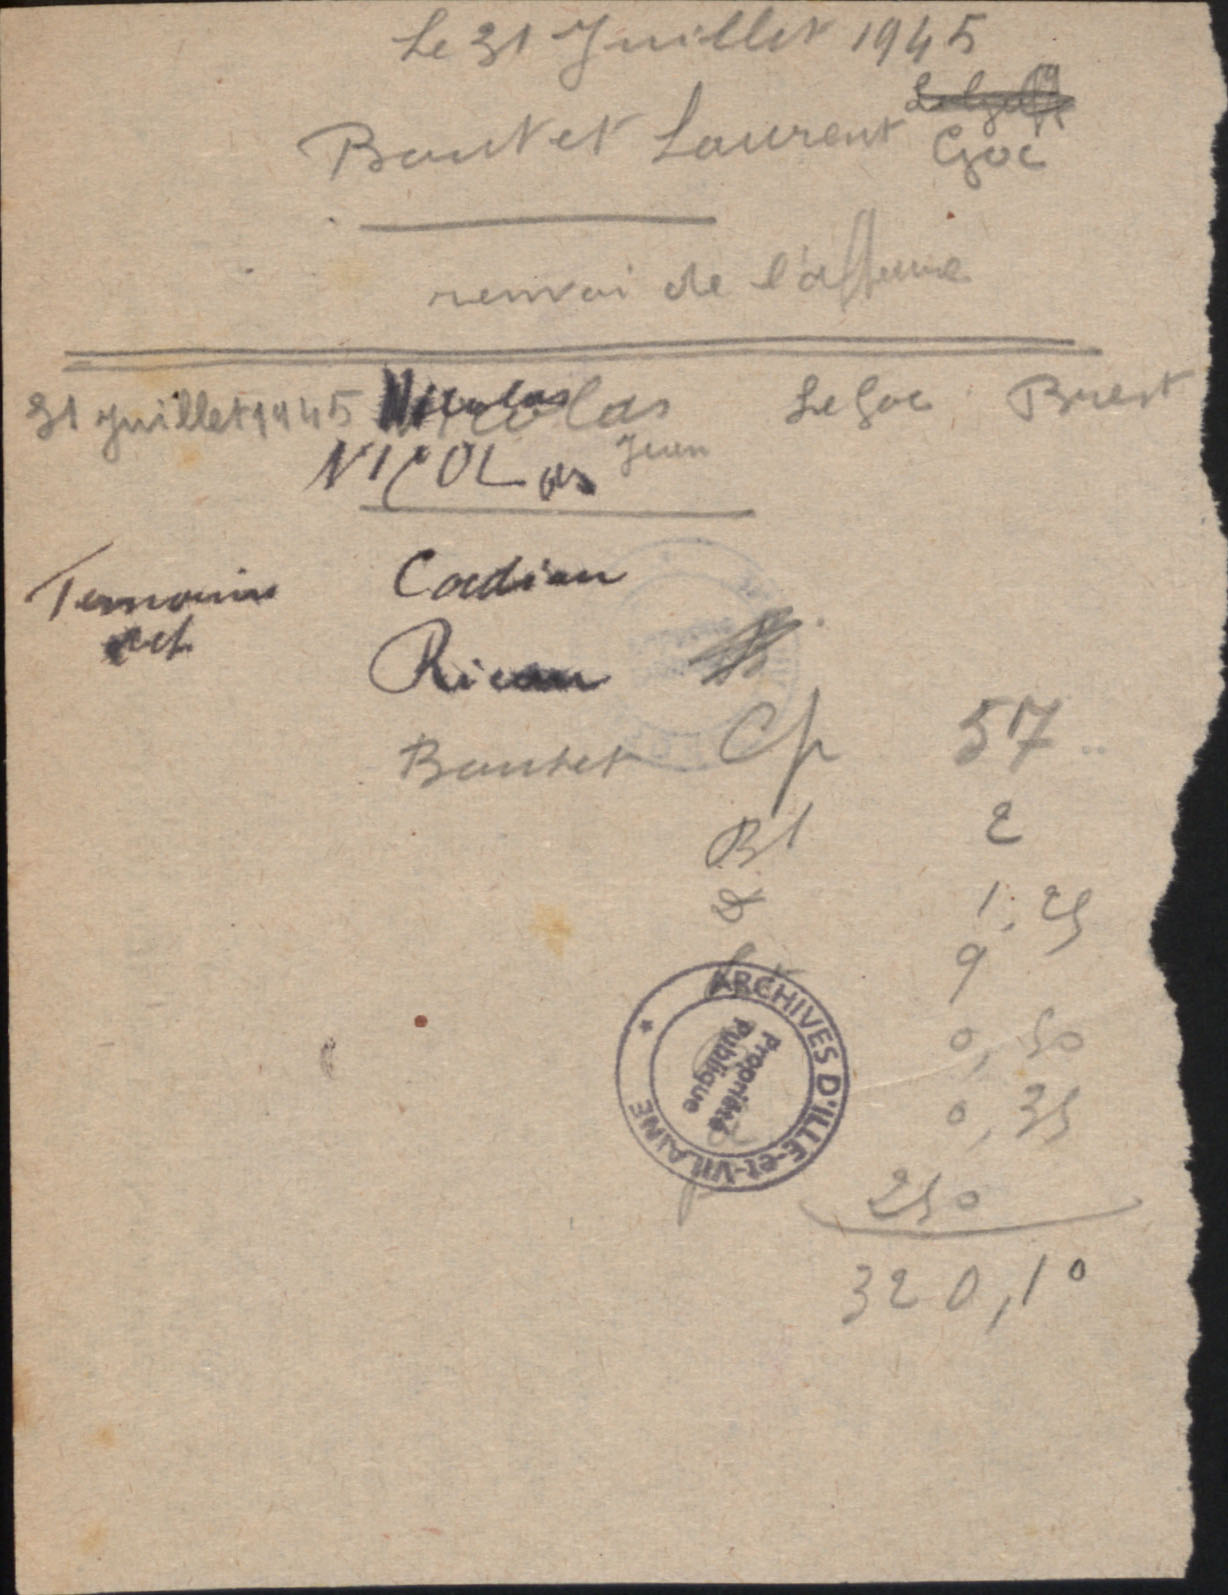 Le 31 Juillet 1945
Boutet Laurent
Goc
renvoi de l'affaire
31 Juillet 1945 Nicolas LeGoc Brest
NICOLas Jean
Temoins Cadiou
Boutet Cp 57
Bl 2
1,25
9
0,50
0,35
250
320,10
ARCHIVES D'ILLE-et-VILAINE
Propriété
Publique